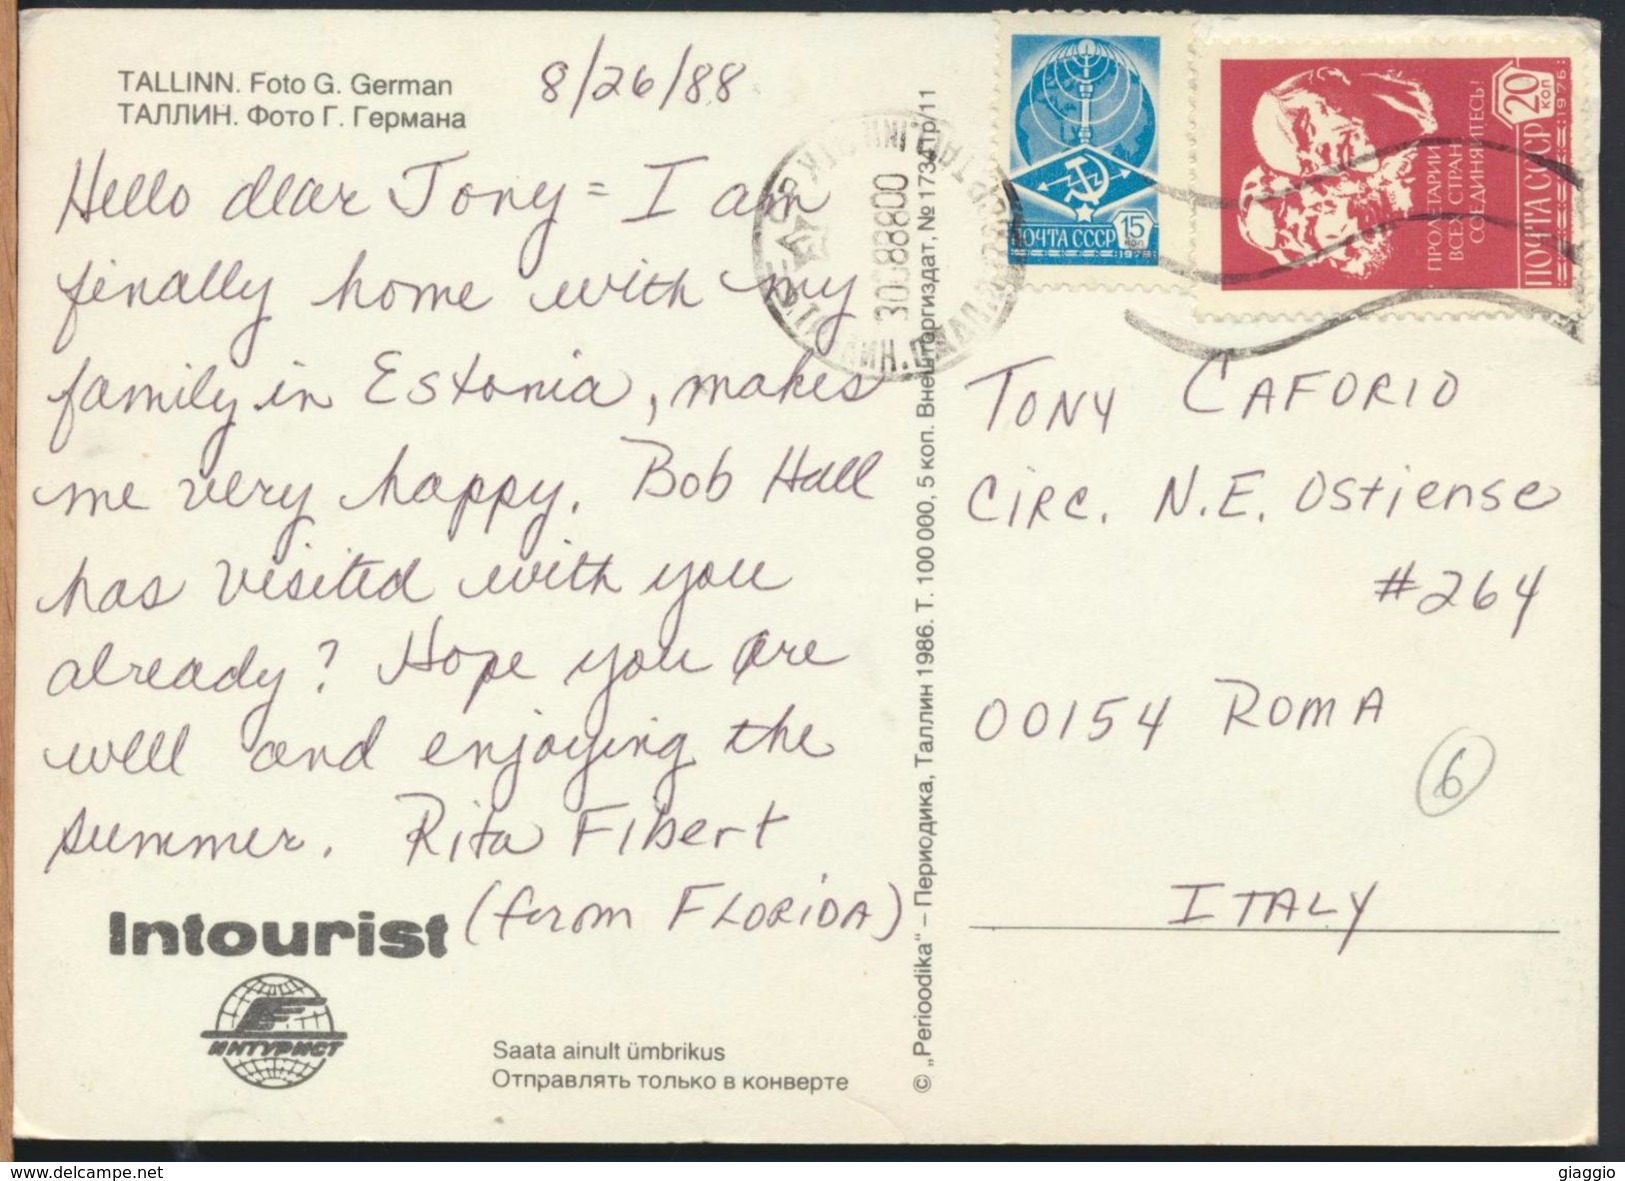 TALLINN. Foto G. German
ТАЛЛИН. Фото Г. Германа
8/26/88
Hello dear Tony = I am
finally home with my
family in Estonia, makes
me very happy. Bob Hall
has visited with you
already? Hope you are
well and enjoying the
summer. Rita Filbert
(from FLORIDA)
Intourist
ИНТУРИСТ
Saata ainult ümbrikus
Отправлять только в конверте
© „Perioodika“ – Периодика, Таллин 1986. Т. 100 000, 5 коп. Внешторгиздат, № 1734Пр/11
ПОЧТА СССР 15 коп
1978
ПРОЛЕТАРИИ
ВСЕХ СТРАН,
СОЕДИНЯЙТЕСЬ!
ПОЧТА СССР 20 КОП
1976
TONY CAFORIO
CIRC. N.E. OSTIENSE
#264
00154 ROMA
6
ITALY
giaggio